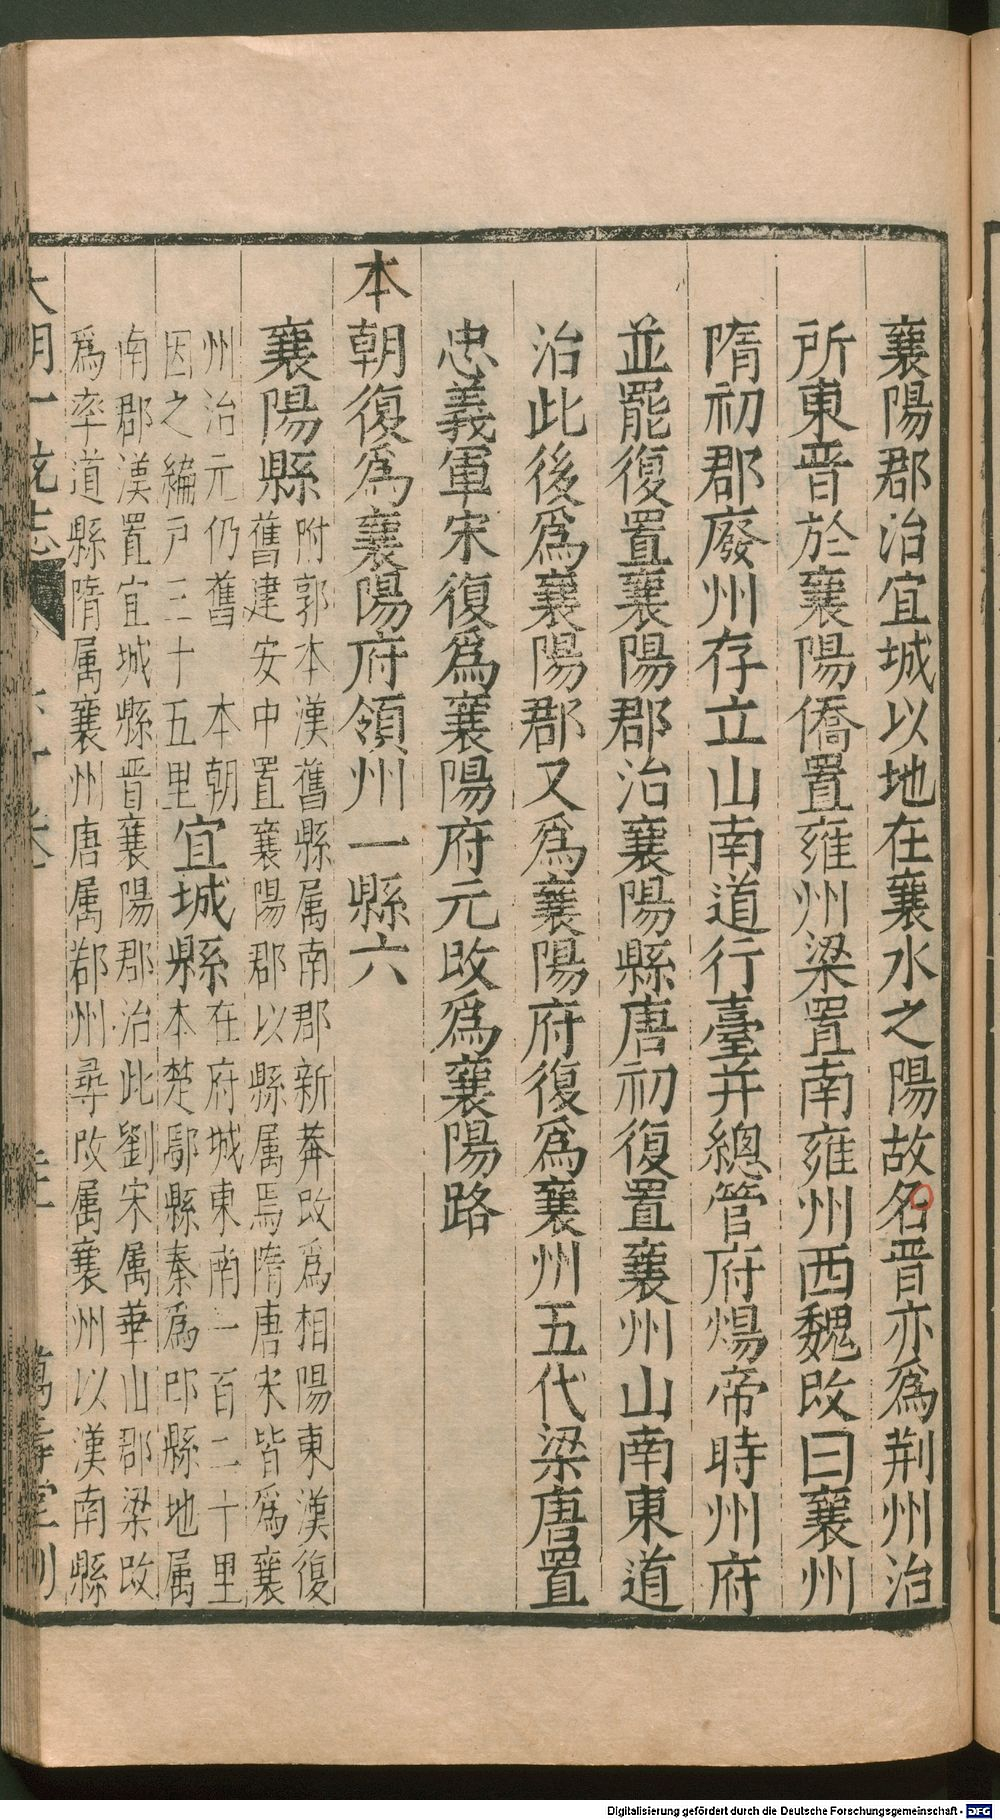 襄陽郡治宜城以地在襄水之陽故名晋亦爲荆州治
所東晋於襄陽僑置雍州梁置南雍州西魏改曰襄州
隋初郡廢州存立山南道行臺并總管府煬帝時州府
並罷復置襄陽郡治襄陽縣唐初復置襄州山南東道
治此後爲襄陽郡又爲襄陽府復爲襄州五代梁唐置
忠義軍宋復爲襄陽府元改爲襄陽路
本朝復爲襄陽府領州一縣六
襄陽縣
附郭本漢舊縣属南郡新莽改爲相陽東漢復
舊建安中置襄陽郡以縣属焉隋唐宋皆爲襄
州治元仍舊 本朝
因之編戸三十五里
宜城縣
在府城東南一百二十里
本楚鄢縣秦爲郢縣地属
南郡漢置宜城縣晋襄陽郡治此劉宋属華山郡梁改
爲率道縣隋属襄州唐属鄀州尋改属襄州以漢南縣
大明一統志
萬壽堂刊
Digitalisierung gefördert durch die Deutsche Forschungsgemeinschaft - DFG